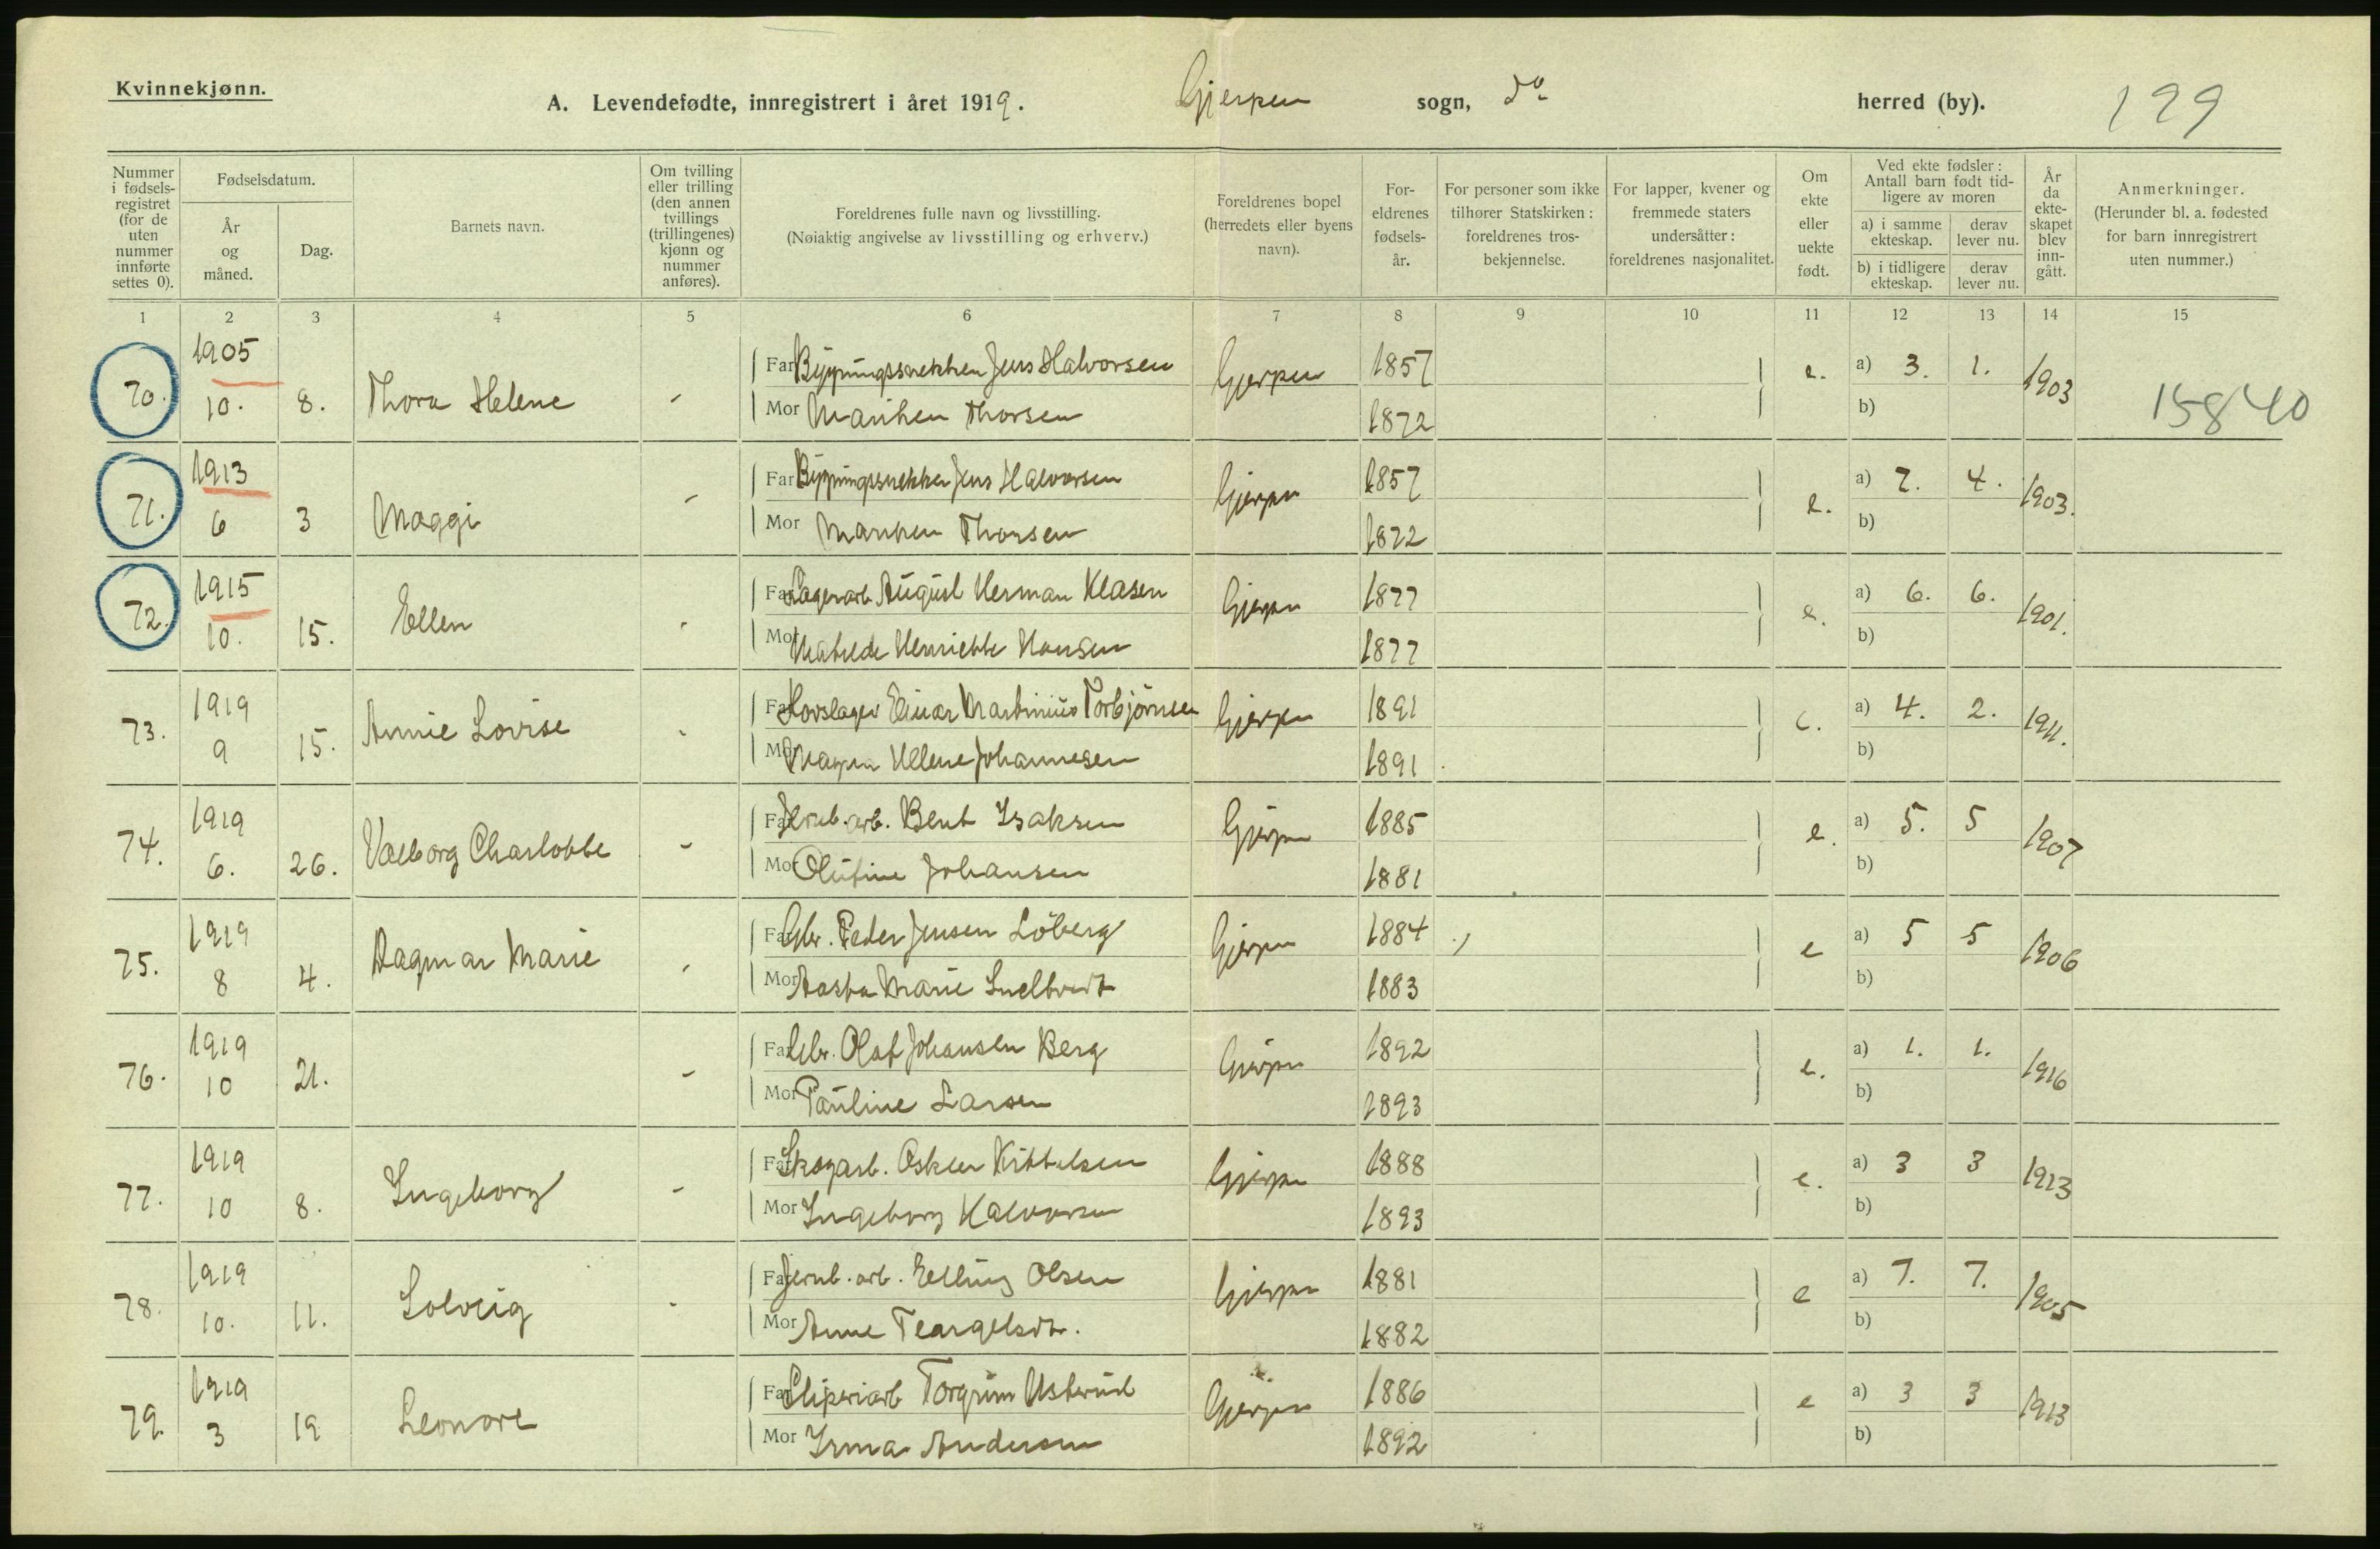 Kvinnekjønn.
A. Levendefødte, innregistrert i året 1919. Gjerpen sogn, do herred (by). 199
Nummer i fødselsregistret (for de uten nummer innførte settes 0).
Fødselsdatum.
År og måned.
Dag.
Barnets navn.
Om tvilling eller trilling (den annen tvillings (trillingenes) kjønn og nummer anføres).
Foreldrenes fulle navn og livsstilling. (Nøiaktig angivelse av livsstilling og erhverv.)
Foreldrenes bopel (herredets eller byens navn).
Foreldrenes fødselsår.
For personer som ikke tilhører Statskirken: foreldrenes trosbekjennelse.
For lapper, kvener og fremmede staters undersåtter: foreldrenes nasjonalitet.
Om ekte eller uekte født.
Ved ekte fødsler: Antall barn født tidligere av moren
a) i samme ekteskap. derav lever nu.
b) i tidligere ekteskap. derav lever nu.
År da ekteskapet blev inngått.
Anmerkninger. (Herunder bl. a. fødested for barn innregistrert uten nummer.)
1 2 3 4 5 6 7 8 9 10 11 12 13 14 15
70. 1905 10. 8. Thora Helene - Far Bygningssnekker Jens Halvorsen Gjerpen 1857 e. a) 3. 1. 1903 15840
Mor Marthen Thorsen 1872 b)
71. 1913 6 3 Maggi - Far Bygningssnekker Jens Halvorsen Gjerpen 1857 e. a) 7. 4. 1903.
Mor Marthen Thorsen 1872 b)
72. 1915 10. 15. Ellen - Far Lagerarb. August Herman Klasen Gjerpen 1877 e. a) 6. 6. 1901.
Mor Matilde Henriette Hansen 1877 b)
73. 1919 9 15. Annie Lovise - Far Hovslager Einar Martinius Torbjörnsen Gjerpen 1891 e. a) 4. 2. 1911.
Mor Magna Helene Johannesen 1891 b)
74. 1919 6. 26. Valborg Charlotte - Far Jernb. arb. Bent Isaksen Gjerpen 1885 e. a) 5. 5 1907
Mor Olufine Johansen 1881 b)
75. 1919 8 4. Dagmar Marie - Far Gbr. Peder Jensen Löberg Gjerpen 1884 e a) 5 5 1906
Mor Aasta Marie 1883 b)
76. 1919 10 21. - Far Gbr. Olaf Johansen Berg Gjerpen 1892 e. a) 1. 1. 1916
Mor Pauline Larsen 1893 b)
77. 1919 10 8. Ingeborg - Far Skogarb. Kittelsen Gjerpen 1888 e. a) 3 3 1913
Mor Ingeborg Halvorsen 1893 b)
78. 1919 10. 11. Solveig - Far Jernb. arb. Elling Olsen Gjerpen 1881 e a) 7. 7. 1905
Mor Anne 1882 b)
79. 1919 3 19 Leonore Far Sliperiarb Torgrim Gjerpen 1886 e a) 3 3 1913
Mor Irma Andersen 1892 b)